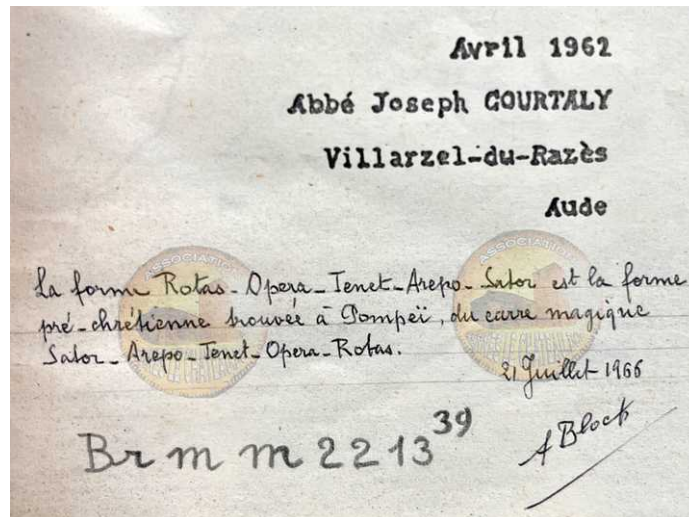 Avril 1962
Abbé Joseph COURTALY
Villarzel-du-Razès
Aude
ASSOCIATION
ASSOCIATION
La forme Rotas-Opera-Tenet-Arepo-Sator est la forme
pré-chrétienne trouvée à Pompeï, du carre magique
Sator-Arepo-Tenet-Opera-Rotas.
21 Juillet 1966
A Block
Br m m 2213 39